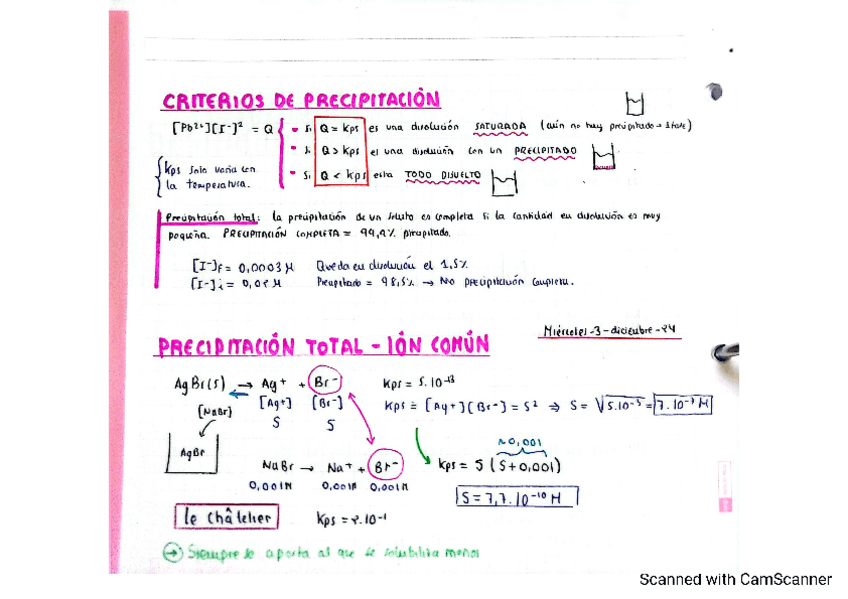 CRITERIOS DE PRECIPITACIÓN
[Pb2+][I-]² = Q
• Si Q = Kps es una disolución SATURADA (aún no hay precipitado)
• Si Q > Kps es una disolución con un PRECIPITADO
• Si Q < Kps esta TODO DISUELTO
Kps solo varía con
la temperatura.
Precipitación total: la precipitación de un soluto es completa si la cantidad en disolución es muy
pequeña. PRECIPITACIÓN COMPLETA = 99,9% precipitado.
[I-]f = 0,0003 M Queda en disolución el 1,5%
[I-]i = 0,02 M Precipitado = 98,5% → NO precipitación completa.
Miércoles-3-diciembre-24
PRECIPITACIÓN TOTAL - IÓN COMÚN
AgBr(s) → Ag+ + Br- Kps = 5.10-13
[NaBr] [Ag+] [Br-] Kps = [Ag+][Br-] = S² ⇒ S = √5.10-⁠ = 7.10-7 M
S S
AgBr
≈0,001
NaBr → Na+ + Br- Kps = S (S+0,001)
0,001M 0,001M 0,001M
S = 7,7.10-10 M
le châtelier Kps = 2.10-1
→ Siempre se aporta al que se solubiliza menos
Scanned with CamScanner